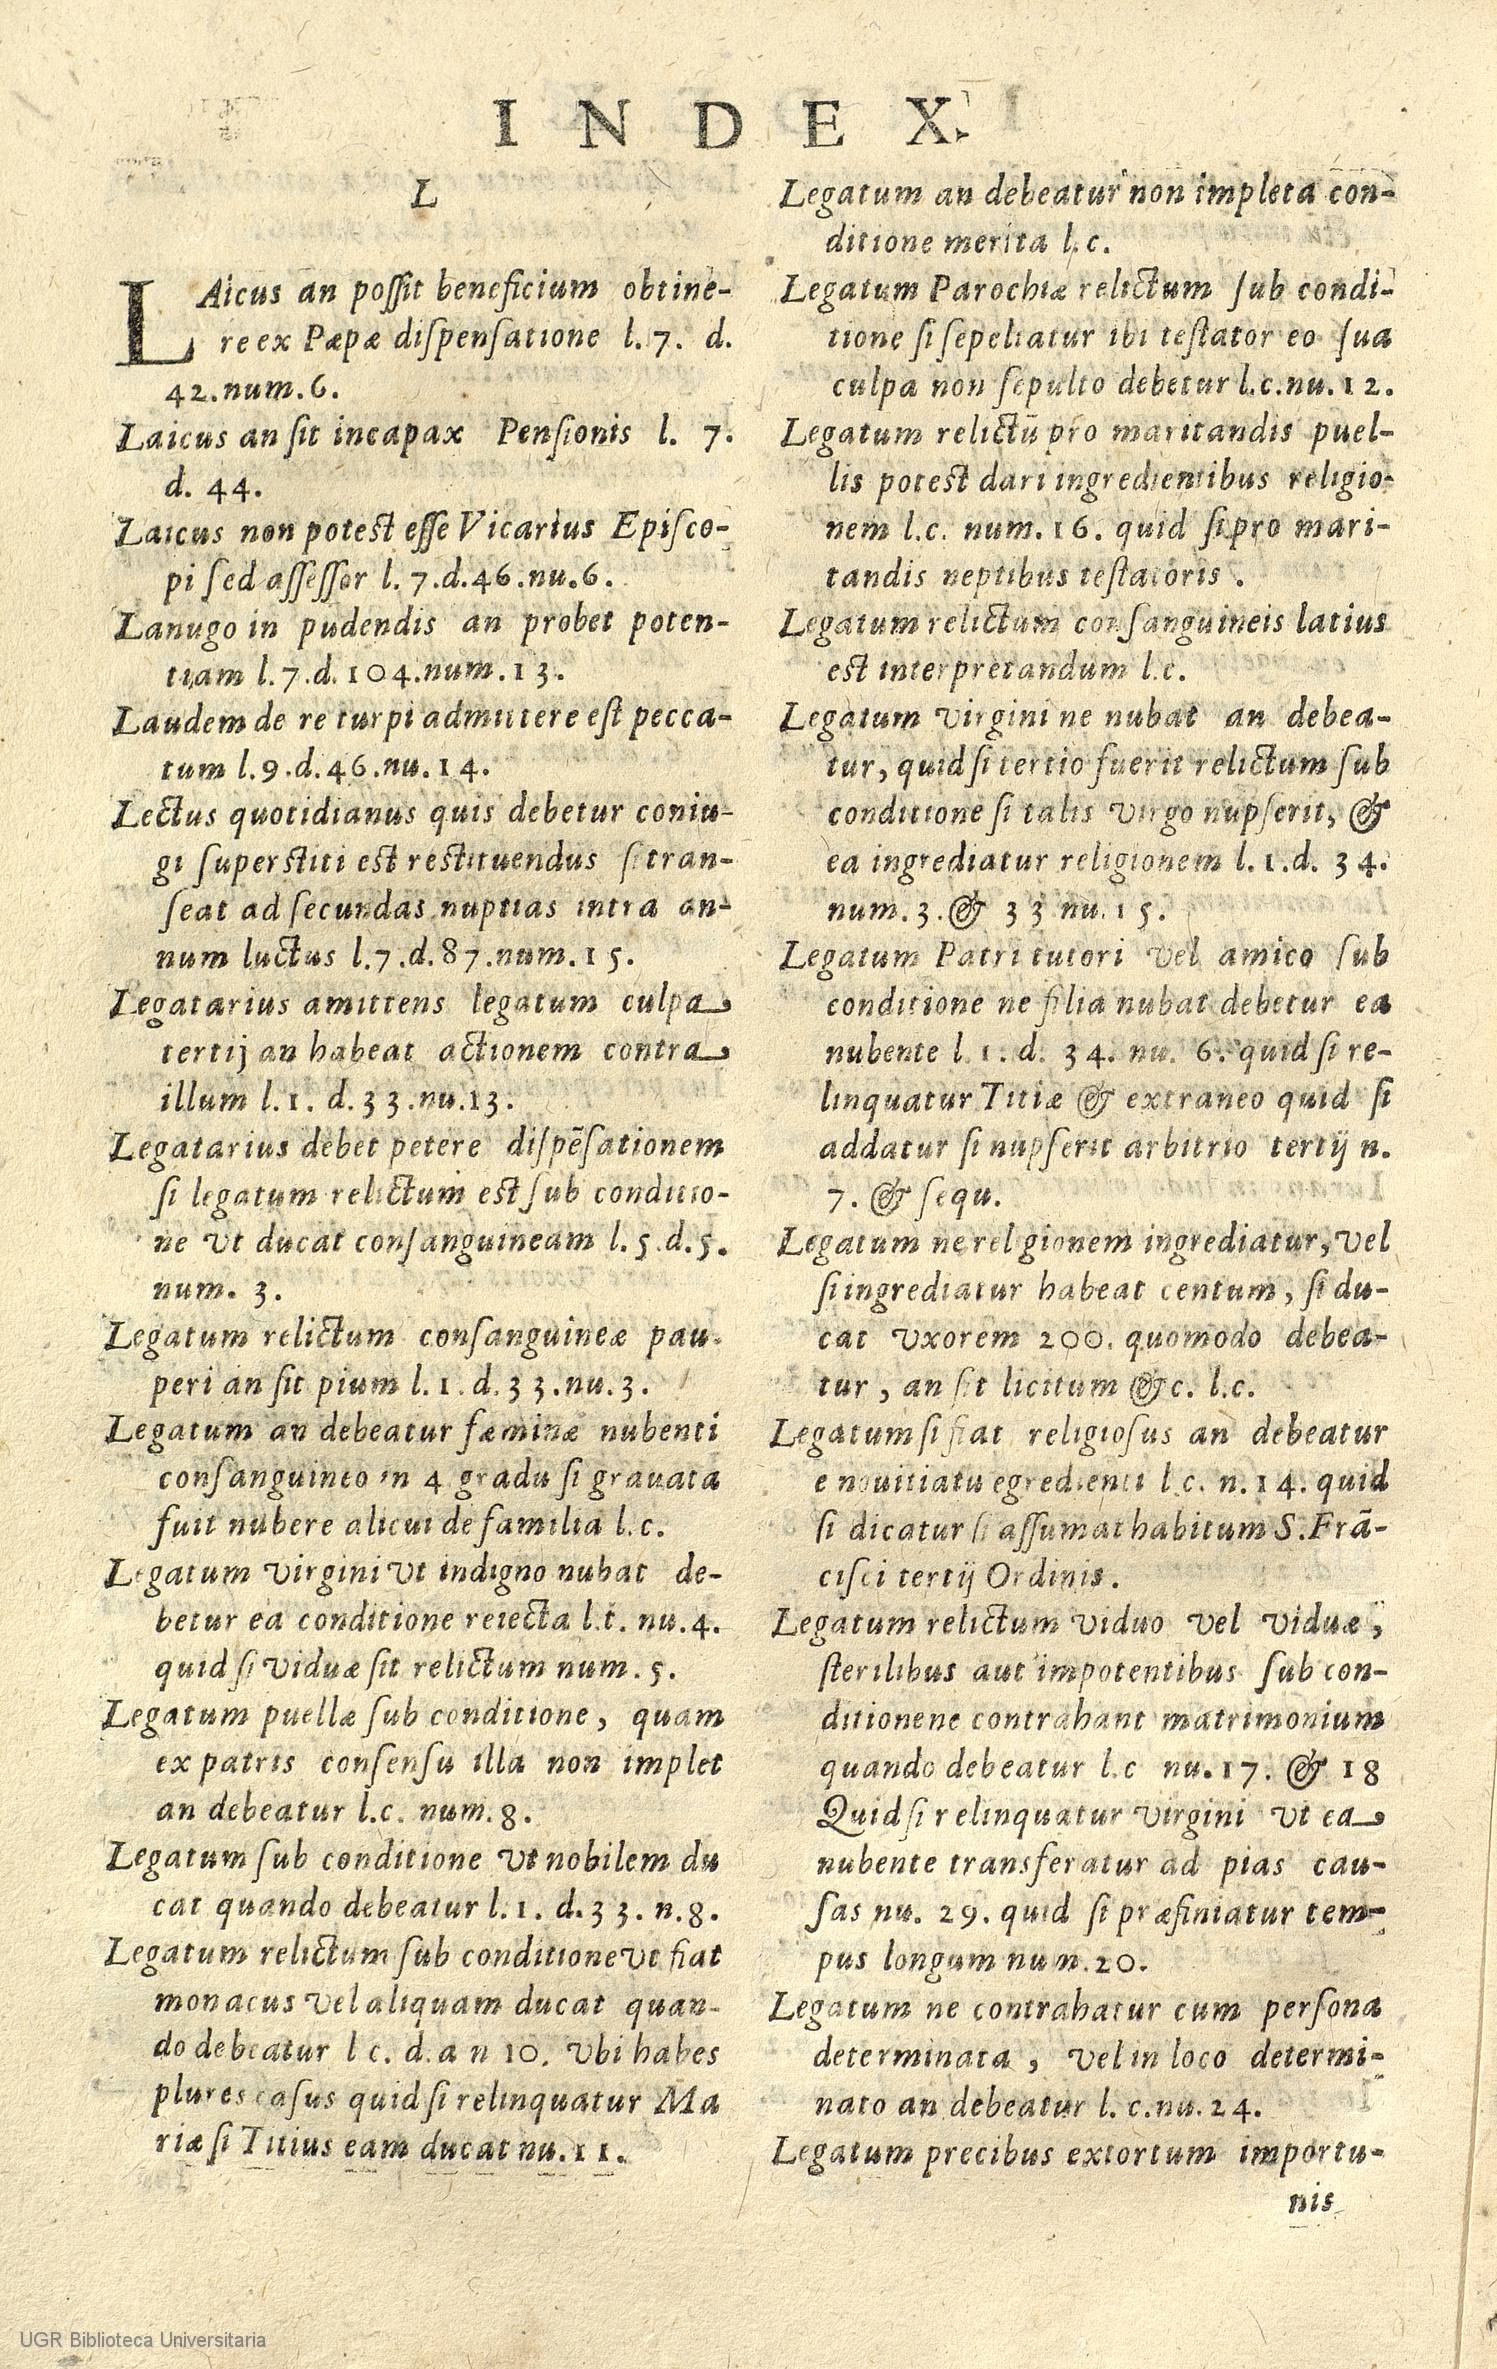 INDEX
L
LAicus an poſſit beneficium obtine-
re ex Pæpæ diſpenſatione l. 7. d.
42.num.6.
Laicus an ſit incapax Penſionis l. 7.
d. 44.
Laicus non potest eſſe Vicarius Epiſco-
pi ſed aſſeſſor l. 7.d.46.nu.6.
Lanugo in pudendis an probet poten-
tiam l.7.d.104.num.13.
Laudem de re turpi admittere eſt pecca-
tum l.9.d.46.nu.14.
Lectus quotidianus quis debetur coniu-
gi ſuperstiti est restituendus ſi tran-
ſeat ad ſecundas nuptias intra an-
num luctus l.7.d.87.num.15.
Legatarius amittens legatum culpa
tertij an habeat actionem contra
illum l.1. d.33.nu.13.
Legatarius debet petere diſpēſationem
ſi legatum relictum est ſub conditio-
ne vt ducat conſanguineam l.5.d.5.
num. 3.
Legatum relictum conſanguineæ pau-
peri an ſit pium l.1.d.33.nu.3.
Legatum an debeatur fæminæ nubenti
conſanguineo in 4 gradu ſi grauata
fuit nubere alicui de familia l.c.
Legatum virgini vt indigno nubat de-
betur ea conditione reiecta l.t. nu.4.
quid ſi viduæ ſit relictum num.5.
Legatum puellæ ſub conditione, quam
ex patris conſenſu illa non implet
an debeatur l.c. num.8.
Legatum ſub conditione vt nobilem du
cat quando debeatur l.1. d.33. n.8.
Legatum relictum ſub conditione vt fiat
monacus vel aliquam ducat quan-
do debeatur l c. d.a n 10. vbi habes
plures casus quid ſi relinquatur Ma
riæ ſi Titius eam ducat nu.11.
Legatum an debeatur non impleta con-
ditione merita l.c.
Legatum Parochiæ relictum ſub condi-
tione ſi ſepeliatur ibi teſtator eo ſua
culpa non ſepulto debetur l.c.nu.12.
Legatum relictū pro maritandis puel-
lis potest dari ingredientibus religio-
nem l.c. num.16. quid ſi pro mari-
tandis neptibus teſtatoris.
Legatum relictum conſanguineis latius
est interpretandum l.c.
Legatum virgini ne nubat an debea-
tur, quid ſi tertio fuerit relictum ſub
conditione ſi talis virgo nupſerit, &
ea ingrediatur religionem l.1.d. 34.
num.3.& 33 nu.15.
Legatum Patri tutori vel amico ſub
conditione ne filia nubat debetur ea
nubente l.1. d. 34. nu. 6. quid ſi re-
linquatur Titiæ & extraneo quid ſi
addatur ſi nupſerit arbitrio tertij n.
7. & ſequ.
Legatum ne relgionem ingrediatur, vel
ſi ingrediatur habeat centum, ſi du-
cat vxorem 200. quomodo debea-
tur, an ſit licitum &c. l.c.
Legatum ſi fiat religioſus an debeatur
e nouitiatu egredienti l.c. n.14. quid
ſi dicatur ſi aſſumat habitum S.Frā-
ciſci tertij Ordinis.
Legatum relictum viduo vel viduæ,
ſterilibus aut impotentibus ſub con-
ditionene contrahant matrimonium
quando debeatur l.c nu.17. & 18
Quid ſi relinquatur virgini vt ea
nubente transferatur ad pias cau-
ſas nu. 29. quid ſi præfiniatur tem-
pus longum num.20.
Legatum ne contrahatur cum perſona
determinata, vel in loco determi-
nato an debeatur l. c.nu.24.
Legatum precibus extortum importu-
nis
UGR Biblioteca Universitaria